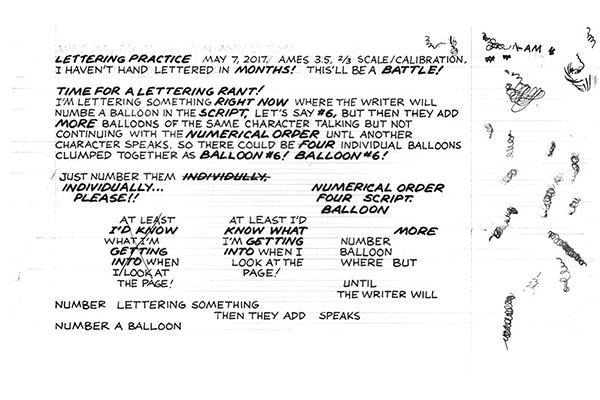 LETTERING PRACTICE MAY 7, 2017. AMES 3.5, 2/3 SCALE/CALIBRATION.
I HAVEN'T HAND LETTERED IN MONTHS! THIS'LL BE A BATTLE!
TIME FOR A LETTERING RANT!
I'M LETTERING SOMETHING RIGHT NOW WHERE THE WRITER WILL
NUMBE A BALLOON IN THE SCRIPT, LET'S SAY #6, BUT THEN THEY ADD
MORE BALLOONS OF THE SAME CHARACTER TALKING BUT NOT
CONTINUING WITH THE NUMERICAL ORDER UNTL ANOTHER
CHARACTER SPEAKS. SO THERE COULD BE FOUR INDIVIDUAL BALLOONS
CLUMPED TOGETHER AS BALLOON #6! BALLOON #6!
JUST NUMBER THEM INDIVIDULLY.
INDIVIDUALLY...
PLEASE!!
AT LEAST
I'D KNOW
WHAT I'M
GETTING
INTO WHEN
I LOOK AT
THE PAGE!
AT LEAST I'D
KNOW WHAT
I'M GETTING
INTO WHEN I
LOOK AT THE
PAGE!
NUMERICAL ORDER
FOUR SCRIPT.
BALLOON
MORE
NUMBER
BALLOON
WHERE BUT
UNTIL
THE WRITER WILL
NUMBER LETTERING SOMETHING
THEN THEY ADD SPEAKS
NUMBER A BALLOON